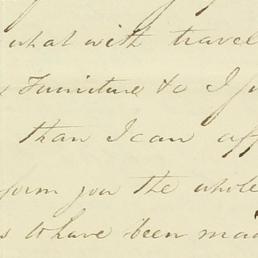 what with travel
Furniture &c I f
than I can aff
form you the whole
s to have been mad